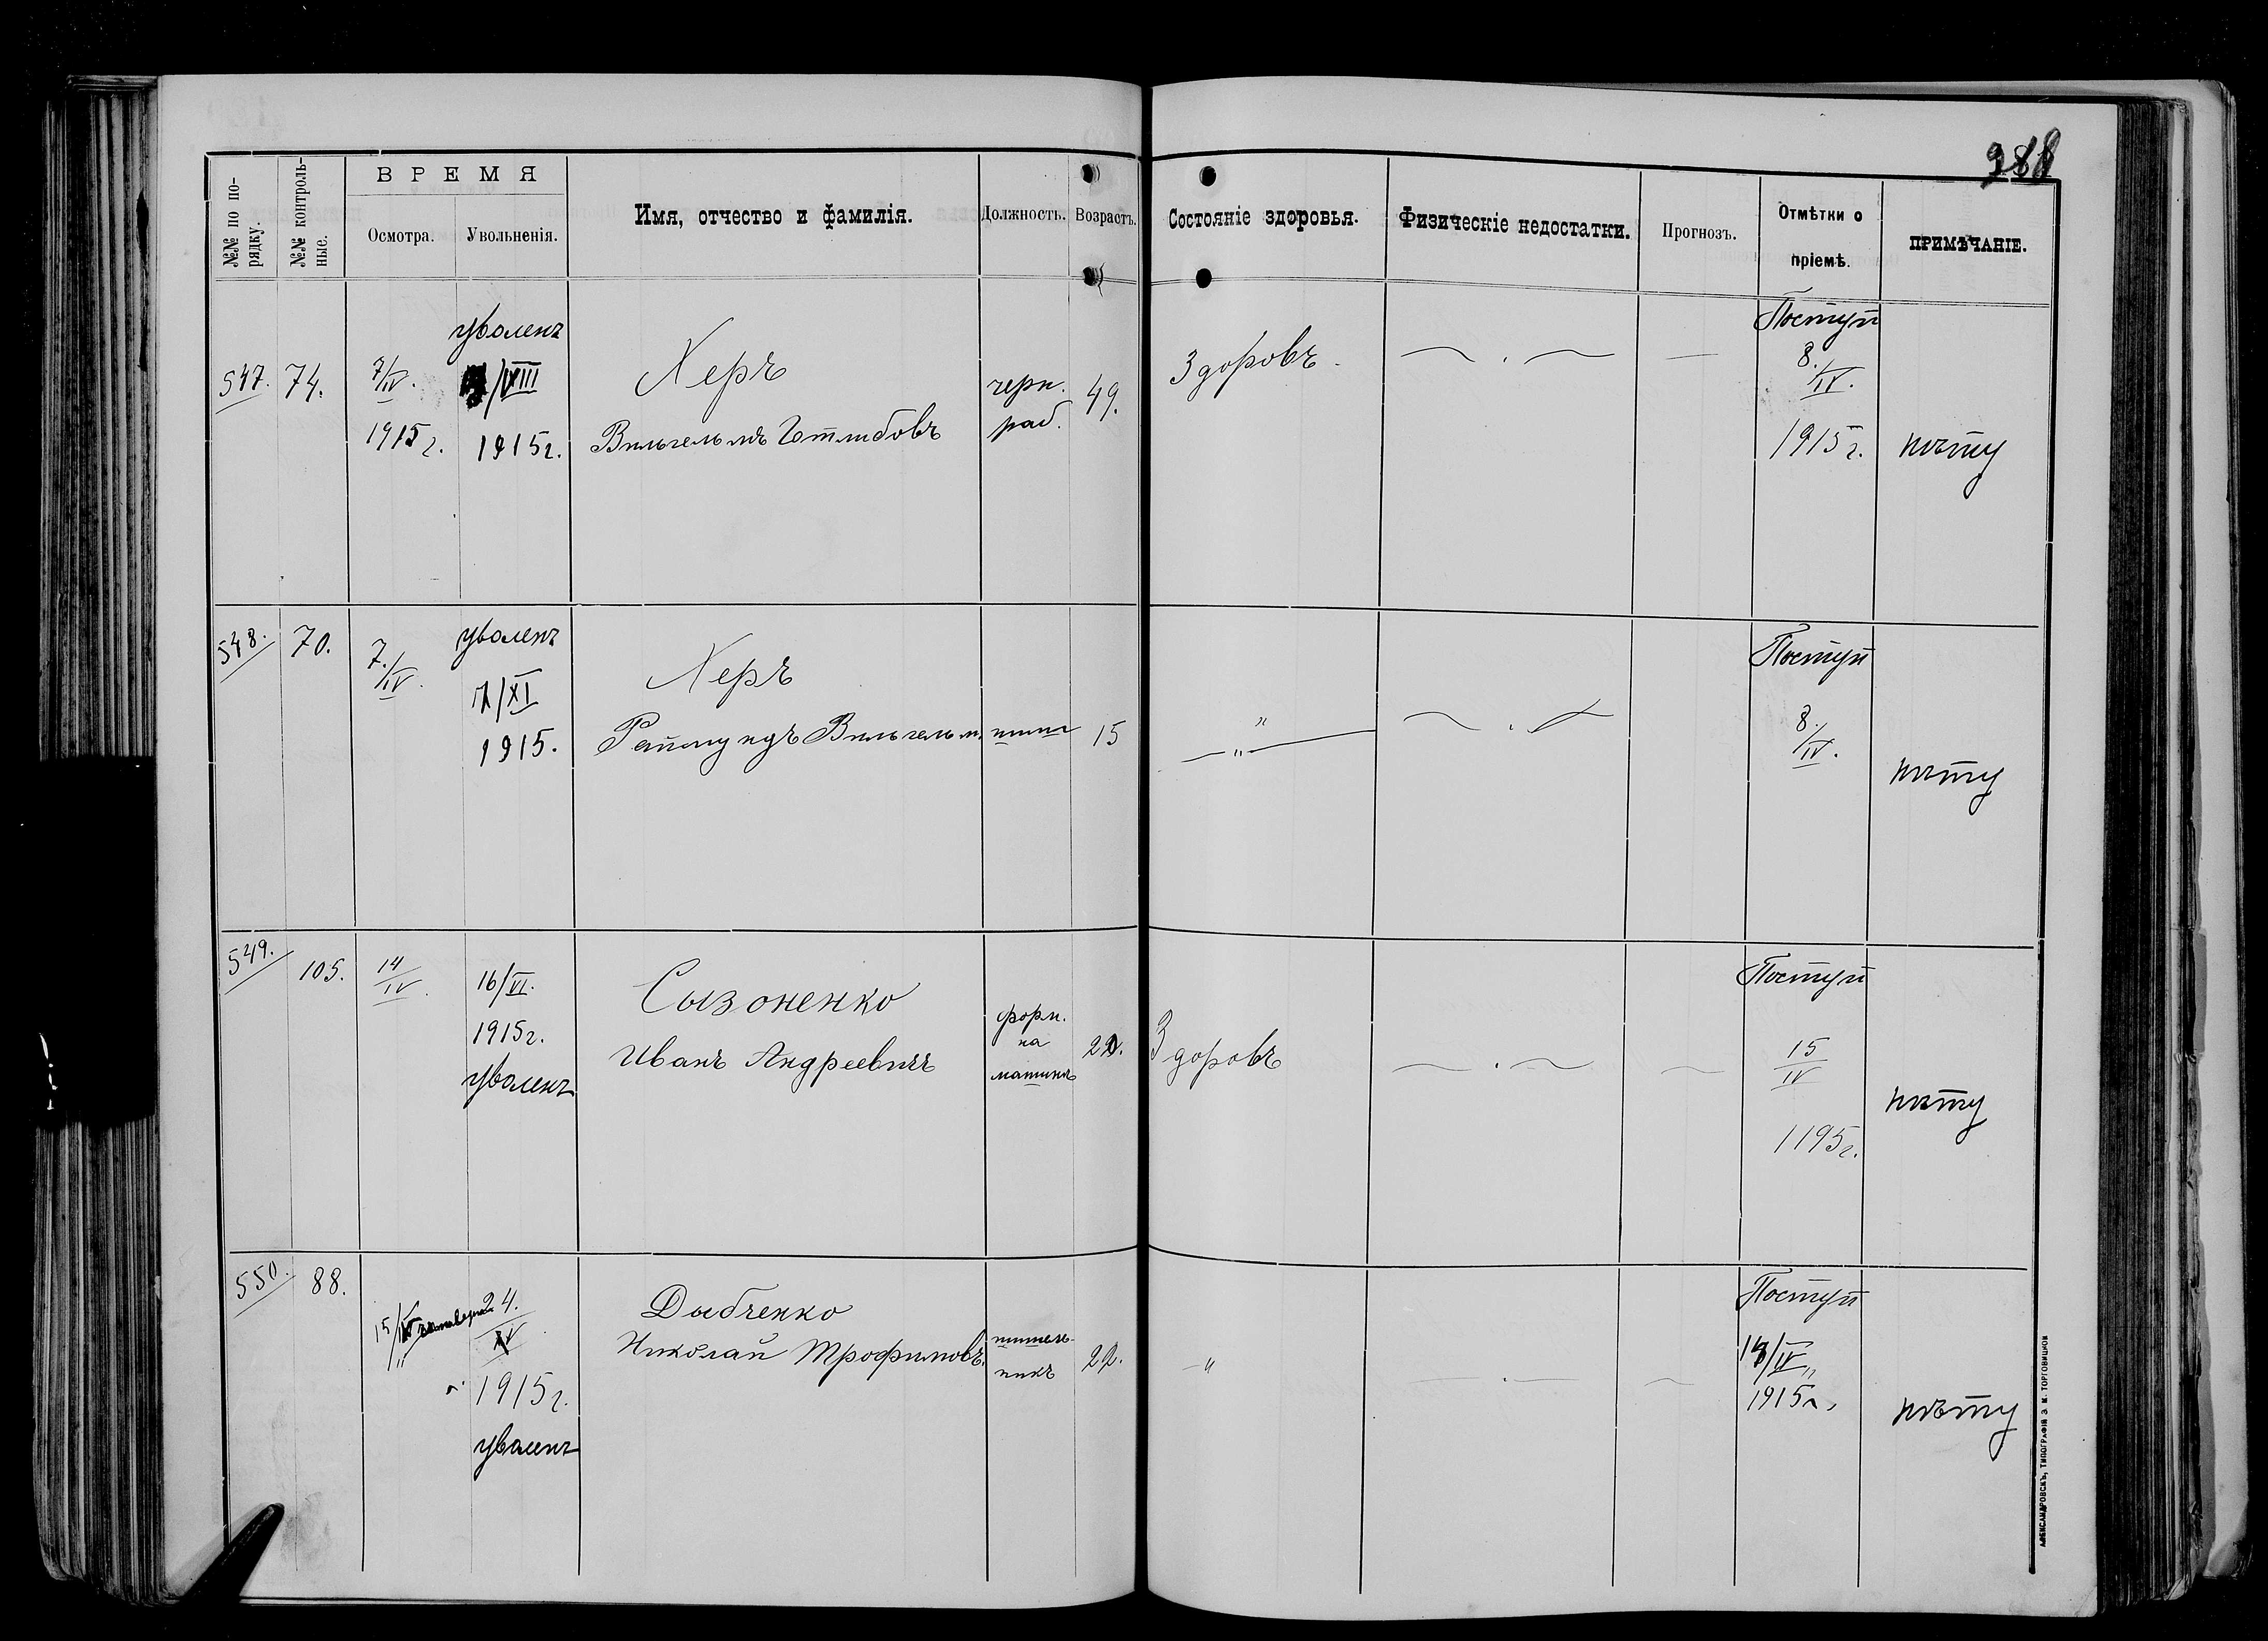 №№ по по-
рядку.
№№ контроль-
ные.
ВРЕМЯ
Осмотра.
Увольненія.
Имя, отчество и фамилія.
Должность.
Возрастъ.
Состояніе здоровья.
Физическіе недостатки.
Прогнозъ.
Отмѣтки о
пріемѣ.
ПРИМѢЧАНІЕ.
547.
74.
7/IV.
1915 г.
уволенъ
/VIII
1915г.
Херъ
Вильгельмъ Готлибовъ
черн.
раб.
49.
Здоровъ.
— . —
—
Поступ
8./IV.
1915 г.
нѣту
548.
70.
7./IV.
уволенъ
7/XI
1915.
Херъ
Раймундъ Вильгельм.
шиш
15
"
— " —
— . —
Поступ
8./IV.
нѣту
549.
105.
14/IV.
16/VI.
1915г.
уволенъ
Сызоненко
Иванъ Андреевичъ
форм.
на
машинѣ
22.
Здоровъ
— . —
—
Поступ
15/IV
1195г.
нѣту
550.
88.
15/IV
24.
IV
1915г.
уволенъ
Дыбченко
Николай Трофимовъ.
шишель-
никъ
22.
— "
— . —
—
Поступ
/IV
1915г.
нѣту
АЛЕКСАНДРОВСКЪ, ТИПОГРАФІЯ Э. М. ТОРГОВИЦКОЙ